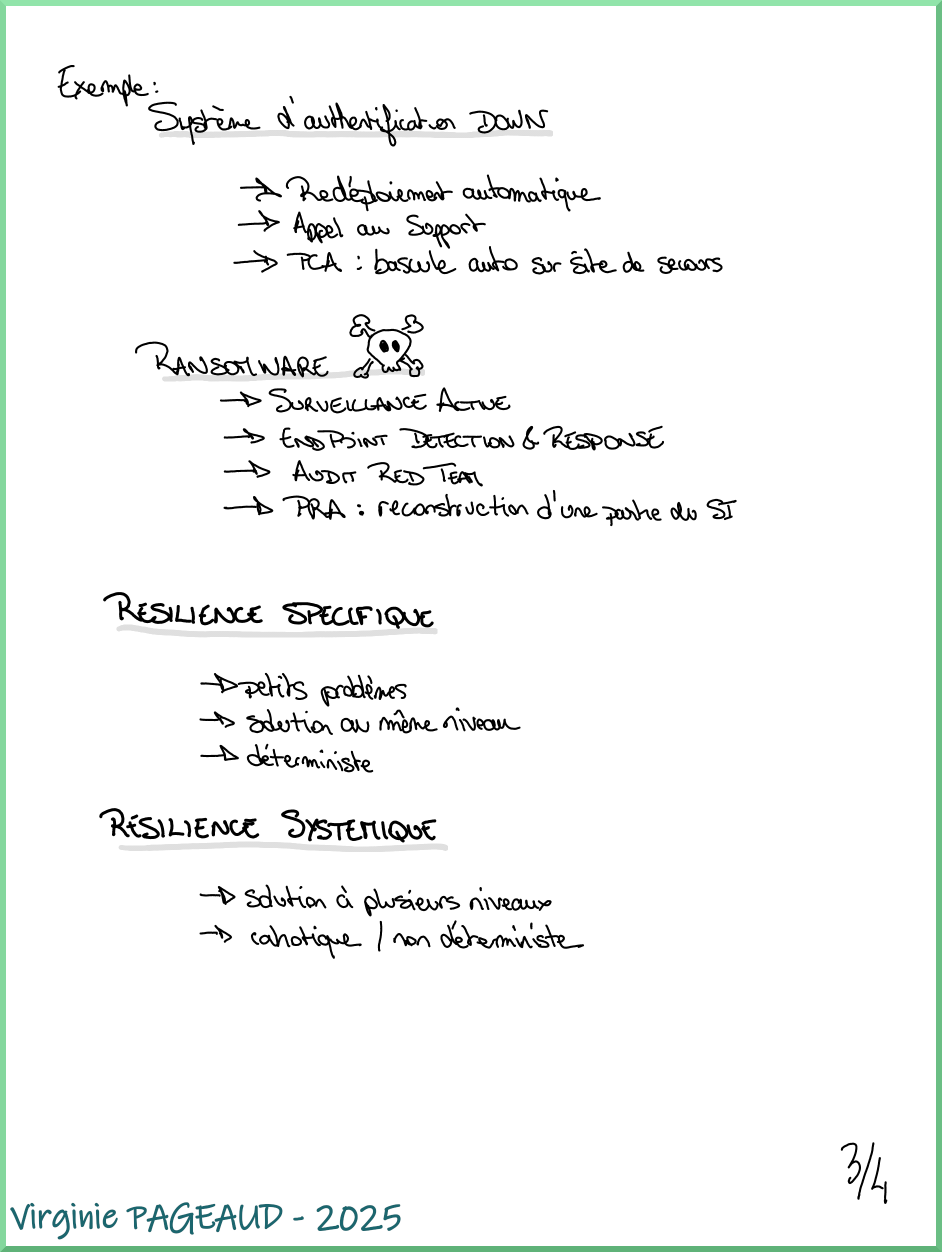 Exemple:
Système d'authentification DOWN
→ Redéploiement automatique
→ Appel au Support
→ PCA : bascule auto sur site de secours
RANSOMWARE
→ SURVEILLANCE ACTIVE
→ ENDPOINT DETECTION & RESPONSE
→ AUDIT RED TEAM
→ PRA : reconstruction d'une partie du SI
RESILIENCE SPECIFIQUE
→ petits problèmes
→ solution au même niveau
→ déterministe
RÉSILIENCE SYSTEMIQUE
→ solution à plusieurs niveaux
→ cahotique / non déterministe
3/4
Virginie PAGEAUD - 2025